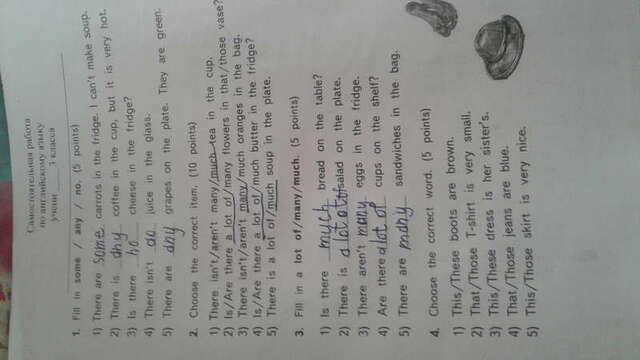 Самостоятельная работа
по английскому языку
учени ____ 3 класса
1. Fill in some / any / no. (5 points)
1) There are some carrots in the fridge. I can't make soup.
2) There is any coffee in the cup, but it is very hot.
3) Is there no cheese in the fridge?
4) There isn't do juice in the glass.
5) There are any grapes on the plate. They are green.
2. Choose the correct item. (10 points)
1) There isn't/aren't many/much tea in the cup.
2) Is/Are there a lot of/many flowers in that/those vase?
3) There isn't/aren't many/much oranges in the bag.
4) Is/Are there a lot of/much butter in the fridge?
5) There is a lot of/much soup in the plate.
3. Fill in a lot of/many/much. (5 points)
1) Is there much bread on the table?
2) There is a lot of salad on the plate.
3) There aren't many eggs in the fridge.
4) Are there a lot of cups on the shelf?
5) There are many sandwiches in the bag.
4. Choose the correct word. (5 points)
1) This/These boots are brown.
2) That/Those T-shirt is very small.
3) This/These dress is her sister's.
4) That/Those jeans are blue.
5) This/Those skirt is very nice.